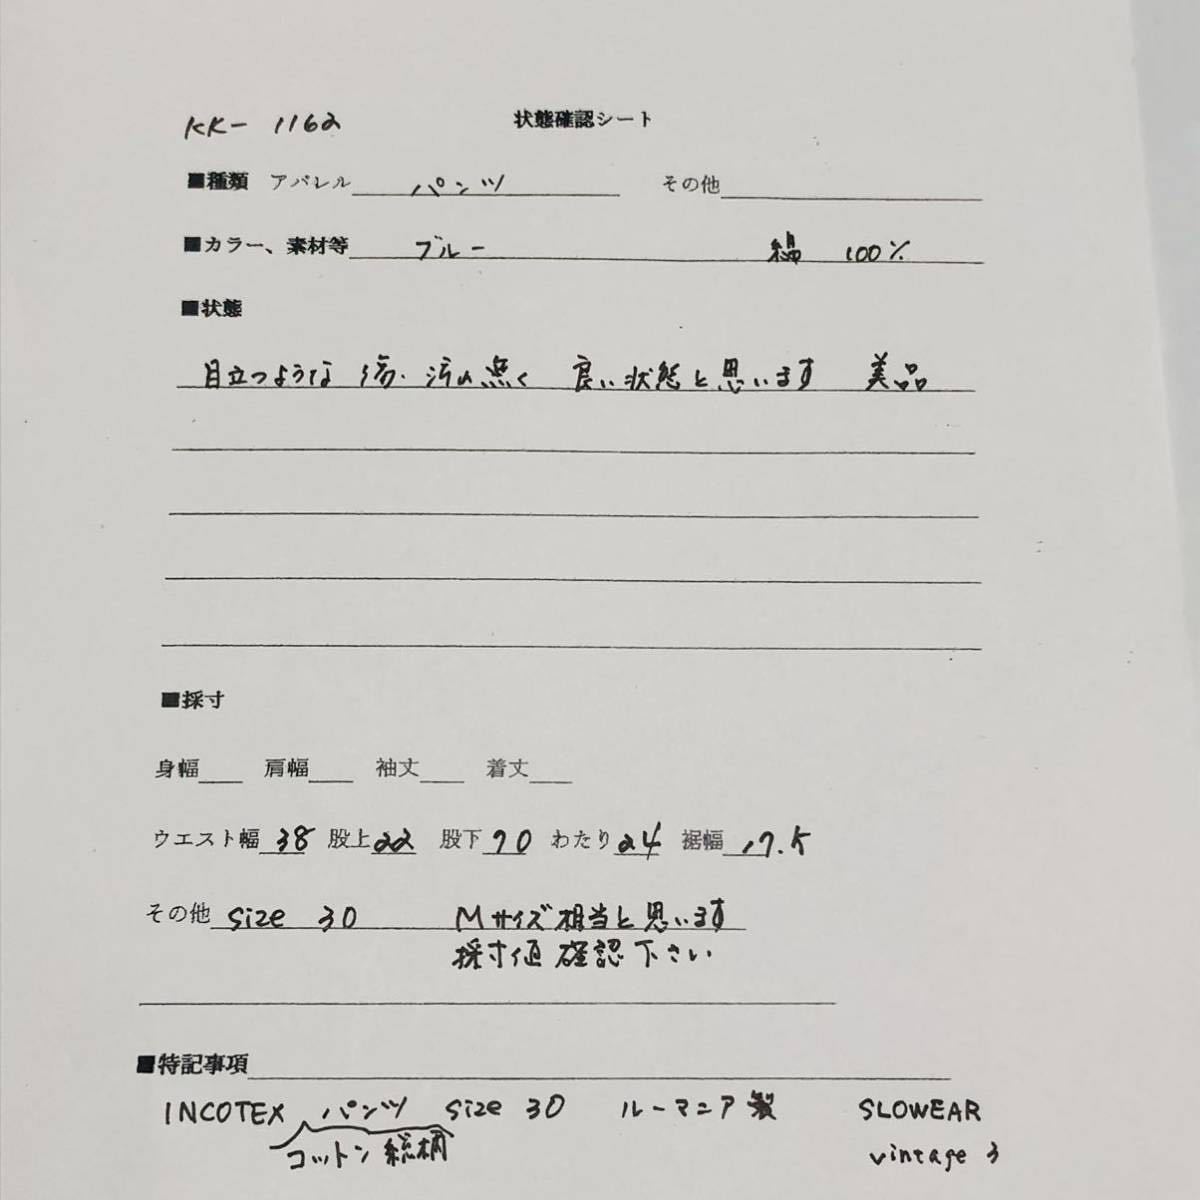 KK- 1162 状態確認シート
■種類 アパレル パンツ その他
■カラー、素材等 ブルー 綿 100%
■状態
目立つような 傷・汚れ無く 良い状態と思います 美品
■採寸
身幅 肩幅 袖丈 着丈
ウエスト幅 38 股上 22 股下 70 わたり 24 裾幅 17.5
その他 size 30 Mサイズ相当と思います
採寸値 確認下さい
■特記事項
INCOTEX パンツ size 30 ルーマニア製 SLOWEAR
コットン総柄 vintage 3